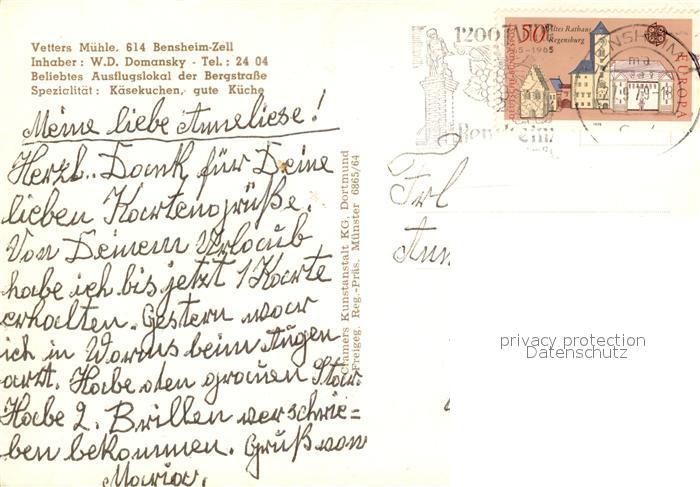 Vetters Mühle, 614 Bensheim-Zell
Inhaber: W.D. Domansky - Tel.: 24 04
Beliebtes Ausflugslokal der Bergstraße
Spezialität: Käsekuchen, gute Küche
Meine liebe Anneliese!
Herzl. Dank für Deine
lieben Kartengrüße.
Von Deinem Urlaub
habe ich bis jetzt 1 Karte
erhalten. Gestern war
ich in Worms beim Augen
arzt. Habe den grauen Star.
Habe 2. Brillen verschrie=
ben bekommen. Gruß von
Maria.
Cramers Kunstanstalt KG, Dortmund
Freigeg. Reg.-Präs. Münster 6865/64
1200 Jahre
765-1965
Bensheim
50
Altes Rathaus
Regensburg
EUROPA
BENSHEIM
Frl
Ann
privacy protection
Datenschutz